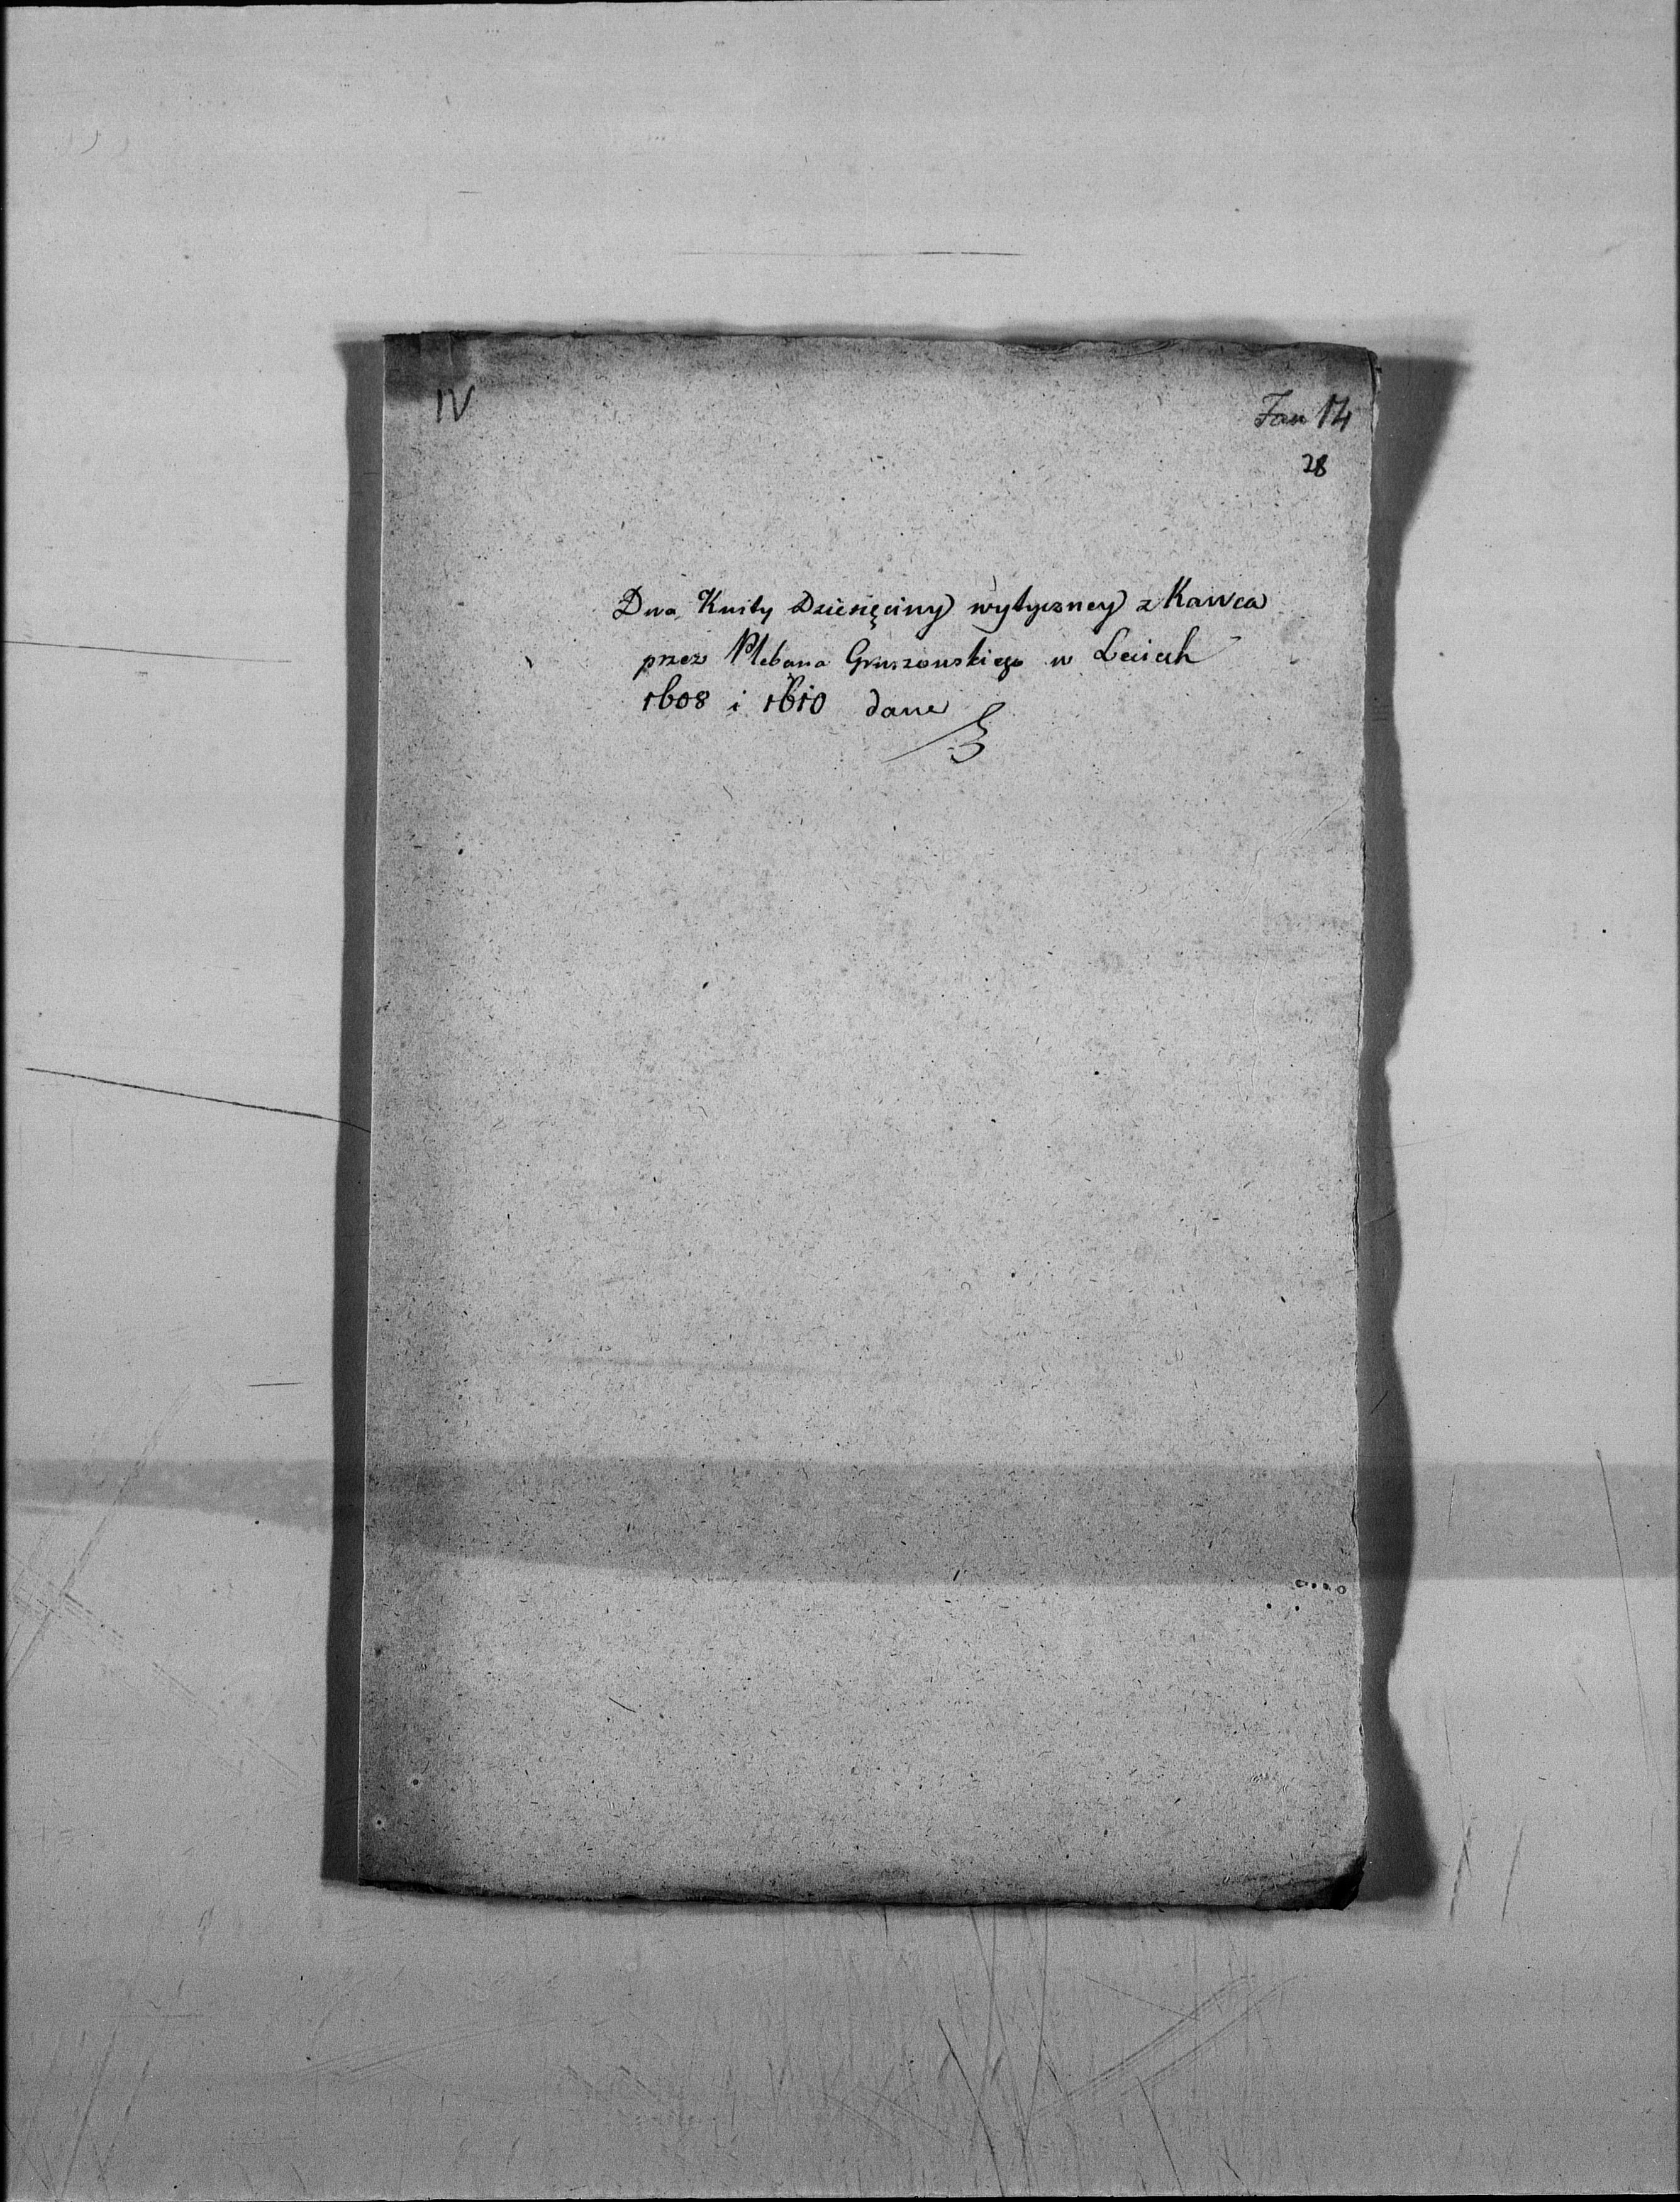 IV
Fasc 14
28
Dwa Kwity Dziesięciny wytyczney z Kawca
przez Plebana Gruszowskiego w Leciech
1608 i 1610 dane